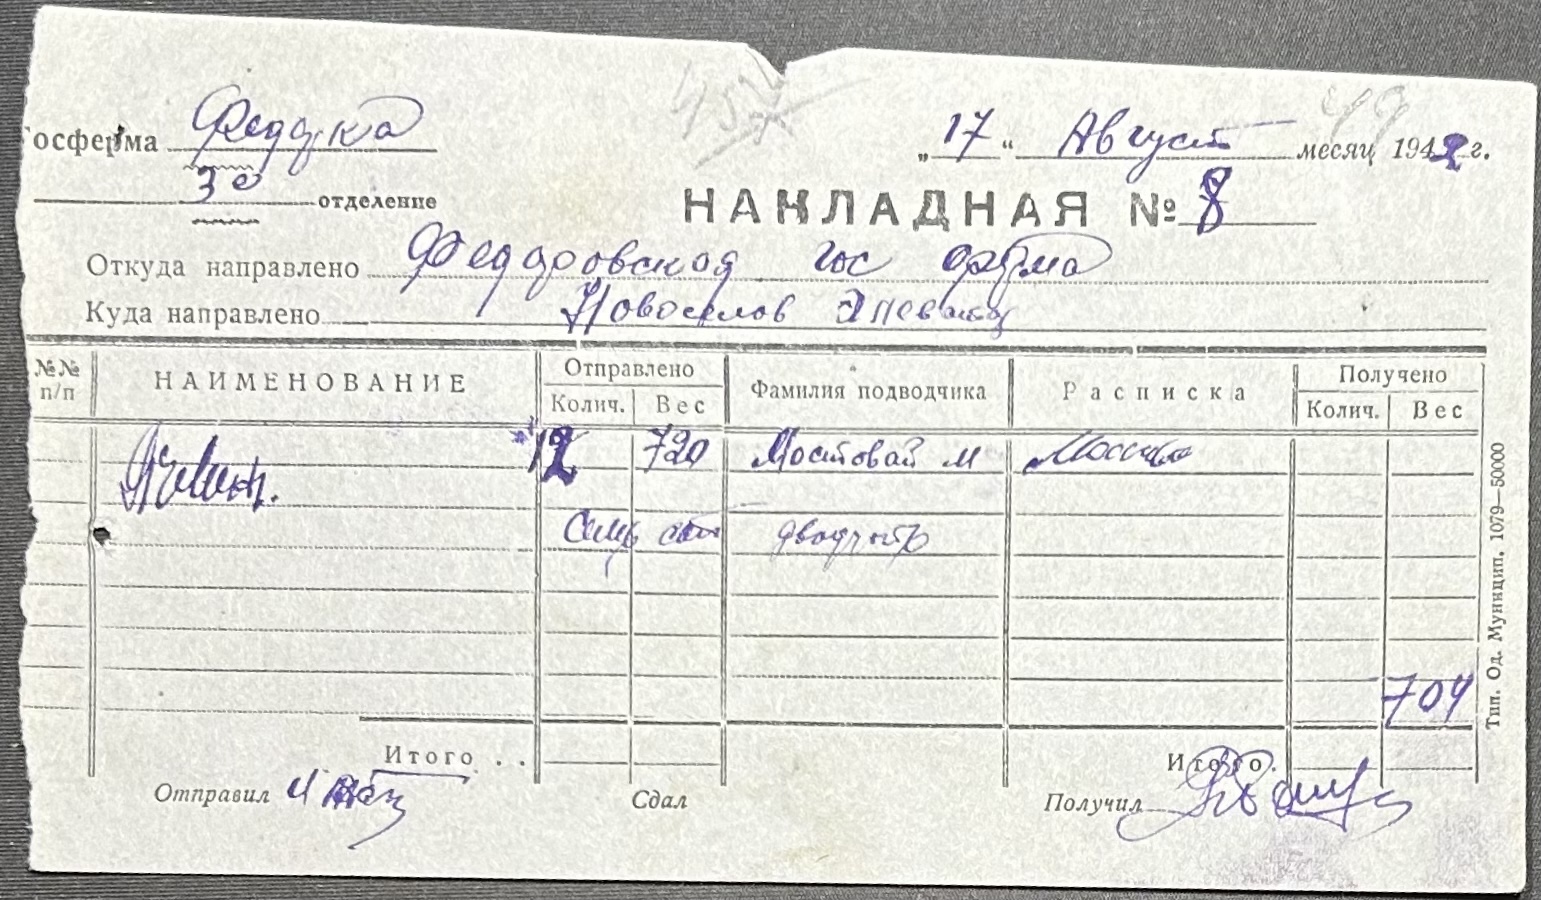 осферма Федурка
30 отделение
„17“ Август месяц 1942 г.
49
НАКЛАДНАЯ № 8
Откуда направлено Федоровской гос ферма
Куда направлено Новоселов
№№ п/п НАИМЕНОВАНИЕ Отправлено Фамилия подводчика Расписка Получено
Колич. Вес Колич. Вес
Ячмень. 12 720 Мостовай М
Семь сот двадцать
704
Итого . . Итого.
Отправил Сдал Получил
Тип. Од. Муницип. 1079—50000